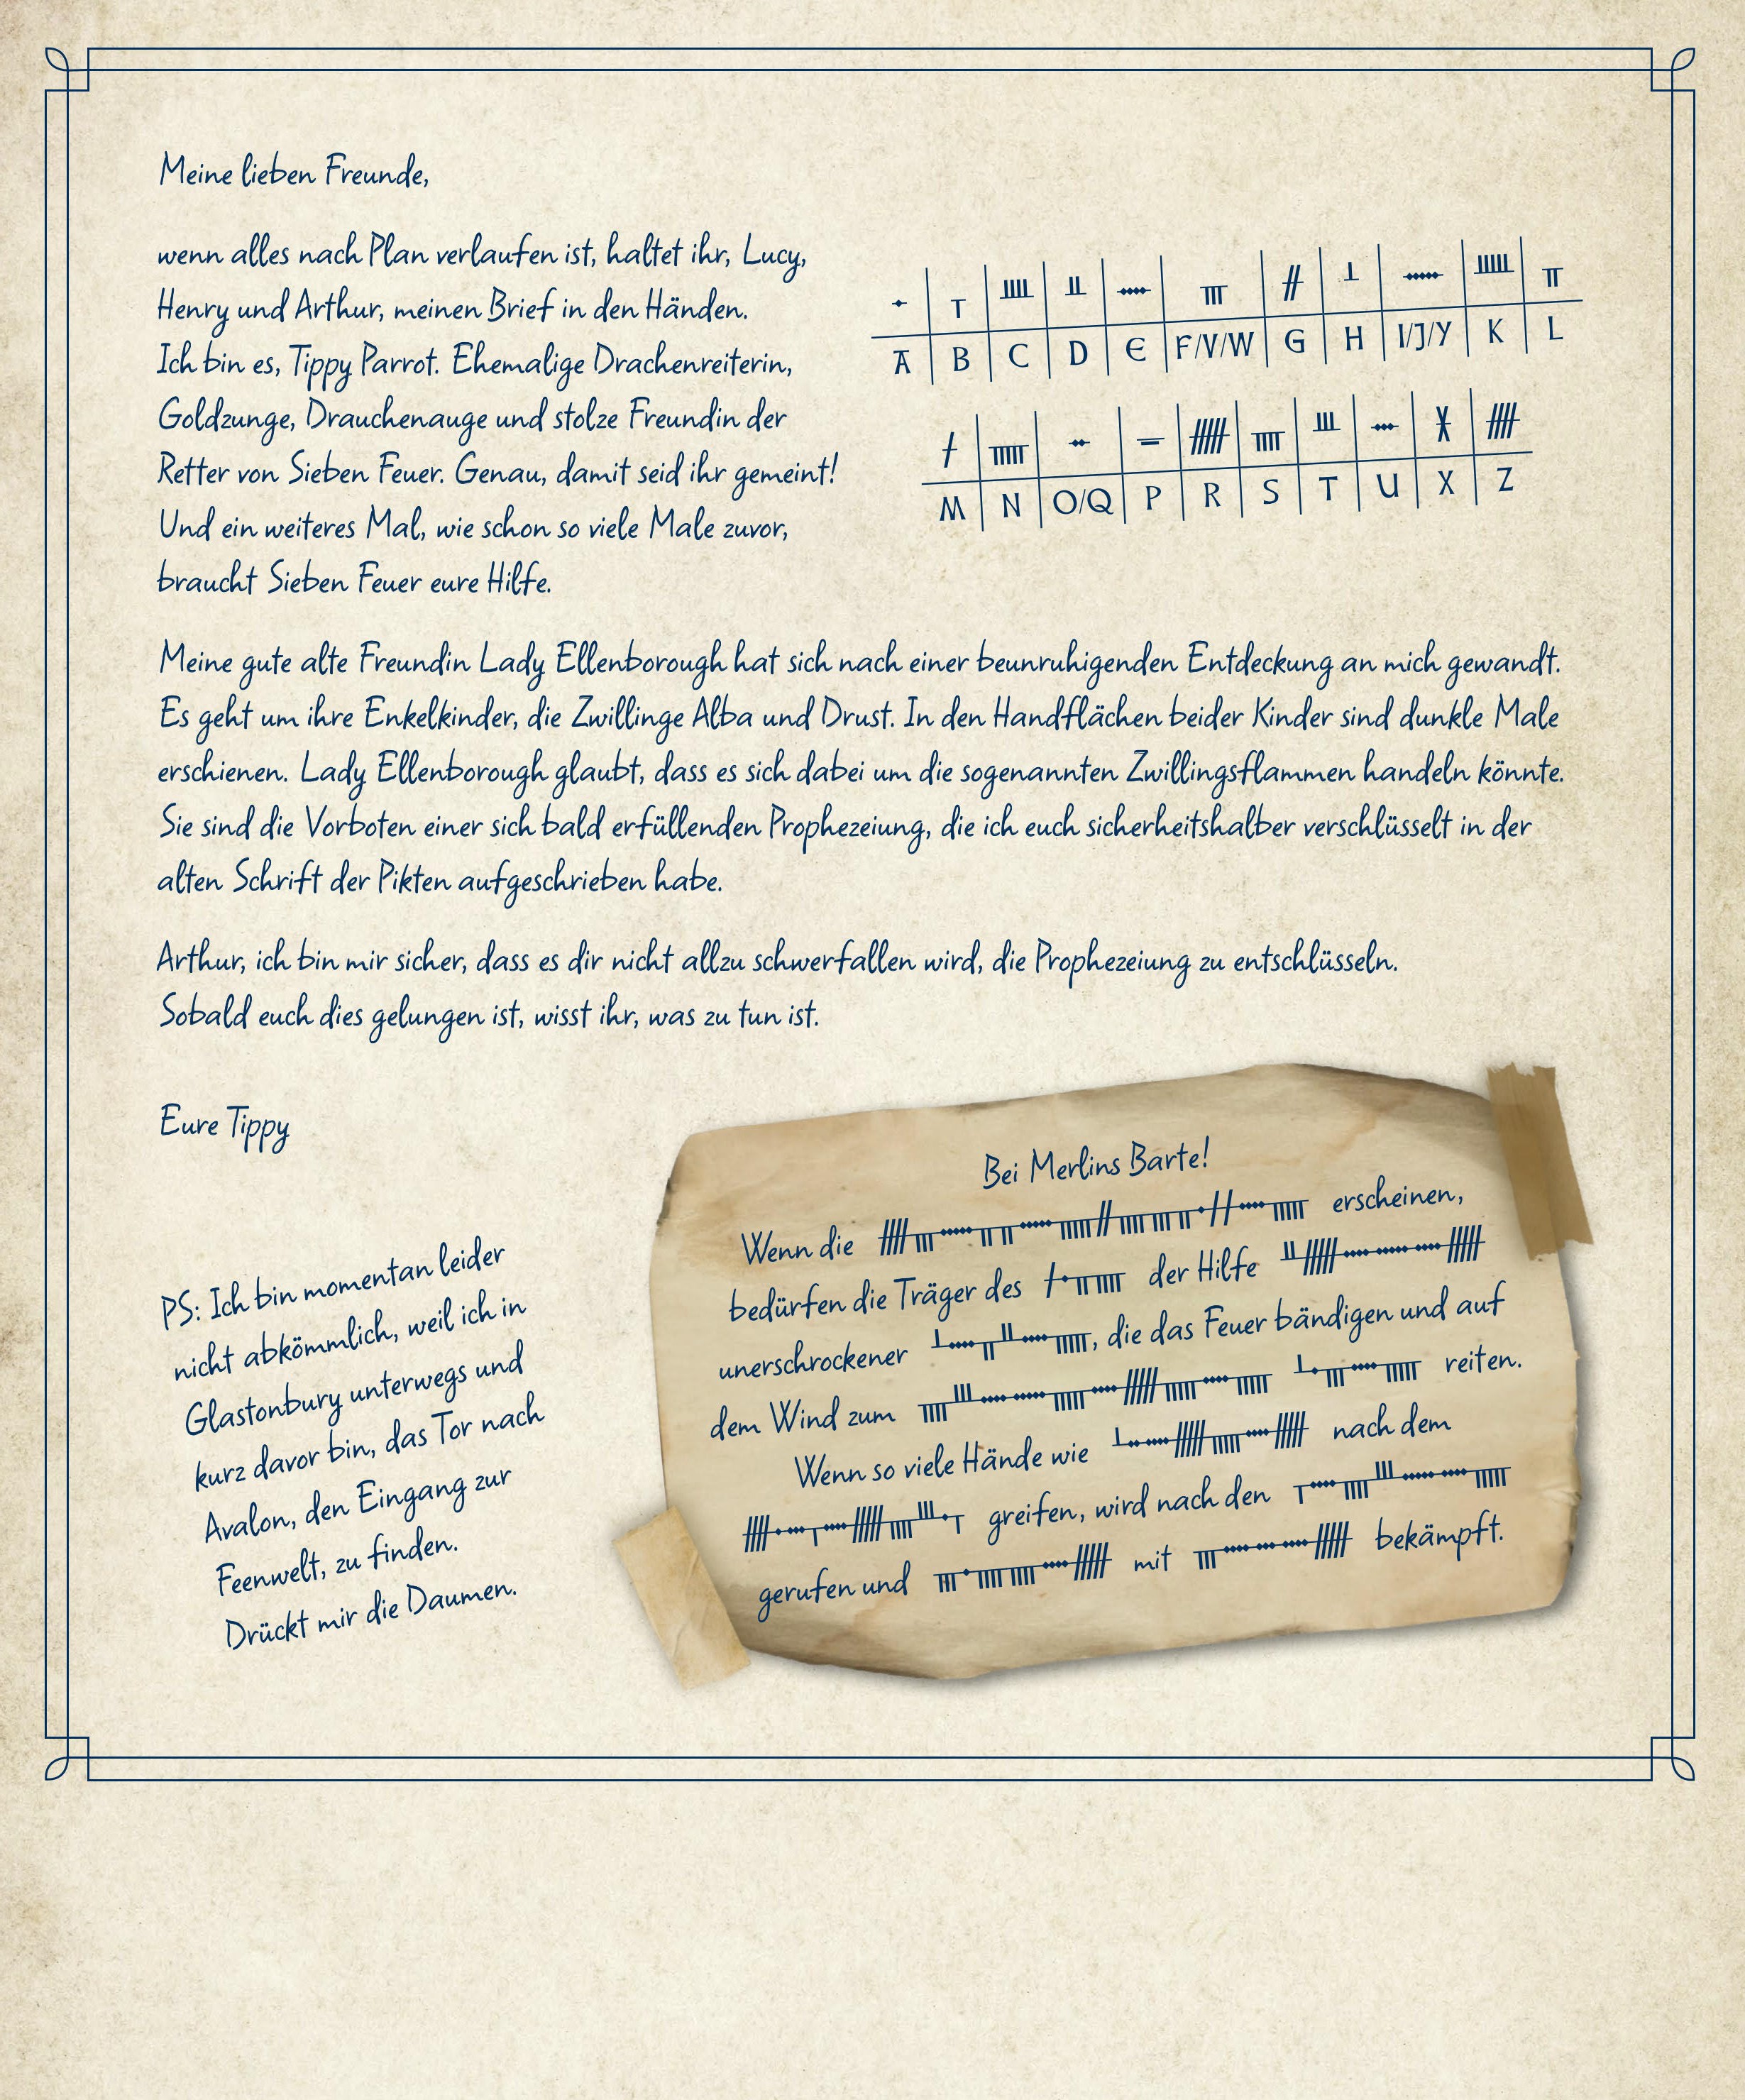 Meine lieben Freunde,
wenn alles nach Plan verlaufen ist, haltet ihr, Lucy,
Henry und Arthur, meinen Brief in den Händen.
Ich bin es, Tippy Parrot. Ehemalige Drachenreiterin,
Goldzunge, Drauchenauge und stolze Freundin der
Retter von Sieben Feuer. Genau, damit seid ihr gemeint!
Und ein weiteres Mal, wie schon so viele Male zuvor,
braucht Sieben Feuer eure Hilfe.
ᚐ ᚁ ᚉ ᚇ ᚓ ᚃ ᚌ ᚆ ᚔ ᚊ ᚂ
A B C D E F/V/W G H I/J/Y K L
ᚋ ᚅ ᚑ = ᚏ ᚄ ᚈ ᚒ ᚕ ᚎ
M N O/Q P R S T U X Z
Meine gute alte Freundin Lady Ellenborough hat sich nach einer beunruhigenden Entdeckung an mich gewandt.
Es geht um ihre Enkelkinder, die Zwillinge Alba und Drust. In den Handflächen beider Kinder sind dunkle Male
erschienen. Lady Ellenborough glaubt, dass es sich dabei um die sogenannten Zwillingsflammen handeln könnte.
Sie sind die Vorboten einer sich bald erfüllenden Prophezeiung, die ich euch sicherheitshalber verschlüsselt in der
alten Schrift der Pikten aufgeschrieben habe.
Arthur, ich bin mir sicher, dass es dir nicht allzu schwerfallen wird, die Prophezeiung zu entschlüsseln.
Sobald euch dies gelungen ist, wisst ihr, was zu tun ist.
Eure Tippy
PS: Ich bin momentan leider
nicht abkömmlich, weil ich in
Glastonbury unterwegs und
kurz davor bin, das Tor nach
Avalon, den Eingang zur
Feenwelt, zu finden.
Drückt mir die Daumen.
Bei Merlins Barte!
Wenn die ᚎᚃᚔᚂᚂᚔᚅᚌᚄᚃᚂᚐᚋᚋᚓᚅ erscheinen,
bedürfen die Träger des ᚋᚐᚂᚄ der Hilfe ᚇᚏᚓᚔᚓᚏ
unerschrockener ᚆᚓᚂᚇᚓᚅ, die das Feuer bändigen und auf
dem Wind zum ᚄᚈᚓᚔᚅᚓᚏᚅᚓᚅ ᚆᚐᚃᚓᚅ reiten.
Wenn so viele Hände wie ᚆᚑᚓᚏᚅᚓᚏ nach dem
ᚎᚐᚒᚁᚓᚏᚄᚈᚐᚁ greifen, wird nach den ᚁᚓᚄᚈᚔᚓᚅ
gerufen und ᚃᚐᚄᚄᚓᚏ mit ᚃᚓᚒᚓᚏ bekämpft.